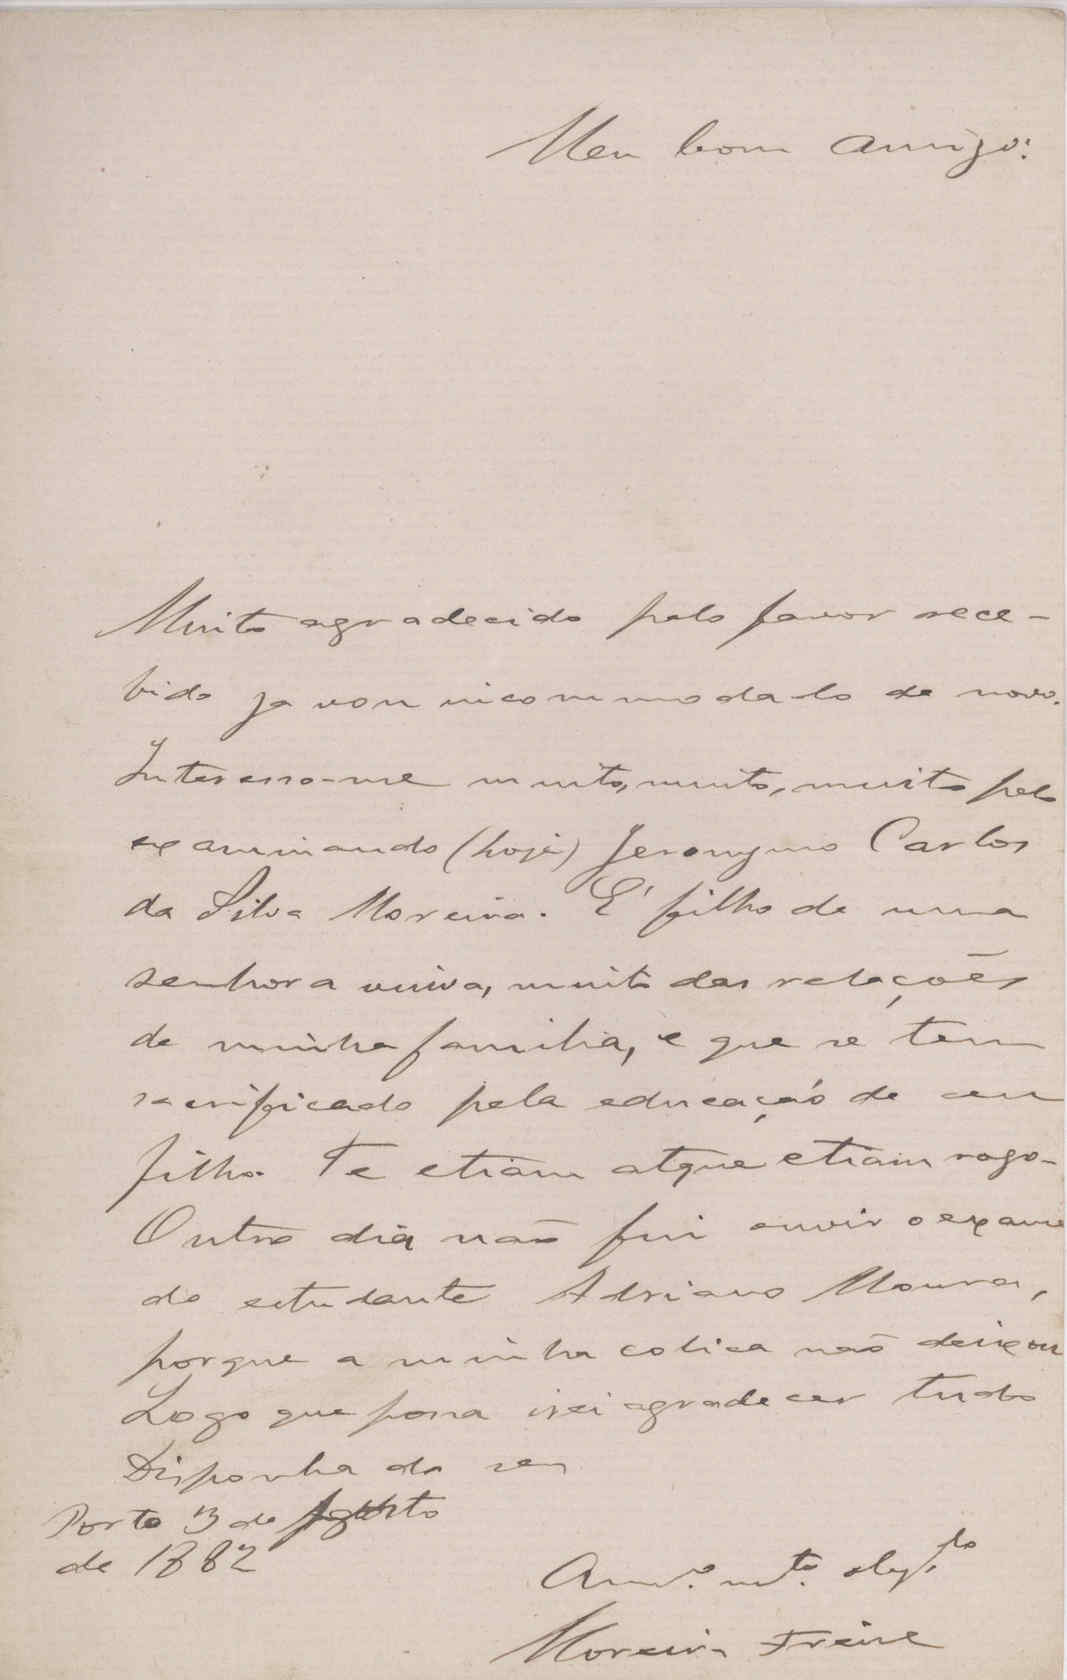 Meu bom amigo:
Muito agradecido pelo favor rece-
bido ja vou incommodalo de novo.
Interesso-me muito, muito, muito pelo
examinando (hoje) Jeronymo Carlos
da Silva Moreira. E' filho de uma
senhora viuva, muito das relações
de minha familia, e que se tem
sacrificado pela educação de seu
filho. Te etiam atque etiam rogo.
Outro dia não fui ouvir o exame
do estudante Adriano Moura,
porque a minha colica não deixou
Logo que possa irei agradecer tudo
Disponha do seu
Porto 3 de Agosto
de 1882
Am.º m.to obg.do
Moreira Freire